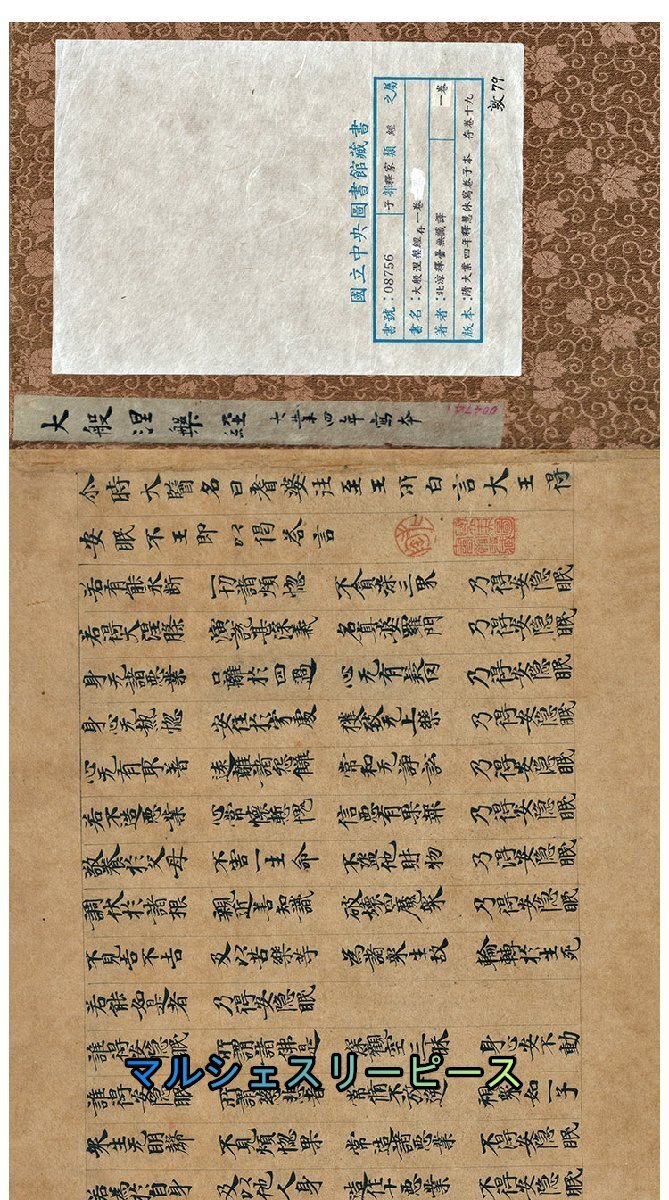 國立中央圖書館藏書
書號：08756 子部釋家類經之屬
書名：大般涅槃經存一卷 一卷
著者：北涼釋曇無讖譯
版本：隋大業四年釋慧休寫卷子本 存卷十九
敦79
大般涅槃經 大業四年寫本
尒時大醫名曰耆婆往至王所白言大王得
安眠不王即以偈答言
若有能永斷 一切諸煩惱 不貪染三界 乃得安隱眠
若得大涅槃 演說甚深義 名真婆羅門 乃得安隱眠
身无諸惡業 口離於四過 心无有疑 乃得安隱眠
身心无熱惱 安住於 處 獲致无上樂 乃得安隱眠
心无有取著 遠離諸怨讎 常和无諍訟 乃得安隱眠
若不造惡業 心常懷慚愧 信惡有果報 乃得安隱眠
敬養於父母 不害一生命 不盜他財物 乃得安隱眠
調伏於諸根 親近善知識 破壞四魔眾 乃得安隱眠
不見吉不吉 及以苦樂等 為諸眾生故 輪轉於生死
若能如是者 乃得安隱眠
誰得安隱眠 所謂諸佛是 深觀空三昧 身心安不動
マルシェスリーピース
誰得安隱眠 所謂慈悲者 常脩不放逸 視眾如一子
眾生无明 不見煩惱果 常造諸惡業 不得安隱眠
若為於自身 及以他人身 造作十惡業 不得安隱眠